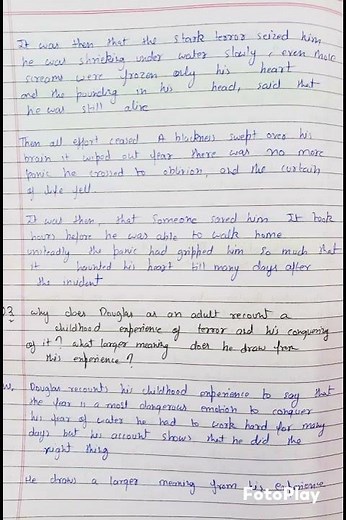 It was then that the stark terror seized him
he was shrieking under water slowly, even those
screams were frozen only his heart
and the pounding in his head, said that
he was still alive
Then all effort ceased A blackness swept over his
brain it wiped out fear there was no more
panic he crossed to oblivion, and the curtain
of life fell.
It was then, that someone saved him It took
hours before he was able to walk home
unsteadly the panic had gripped him so much that
it haunted his heart till many days after
the incident
Q3 why does Douglas as an adult recount a
childhood experience of terror and his conquering
of it? what larger meaning does he draw from
this experience?
Douglas recounts his childhood experience to say that
the fear is a most dangerous emotion to conquer
his fear of water he had to work hard for many
days but his account shows that he did the
right thing
He draws a larger meaning from his experience
FotoPlay